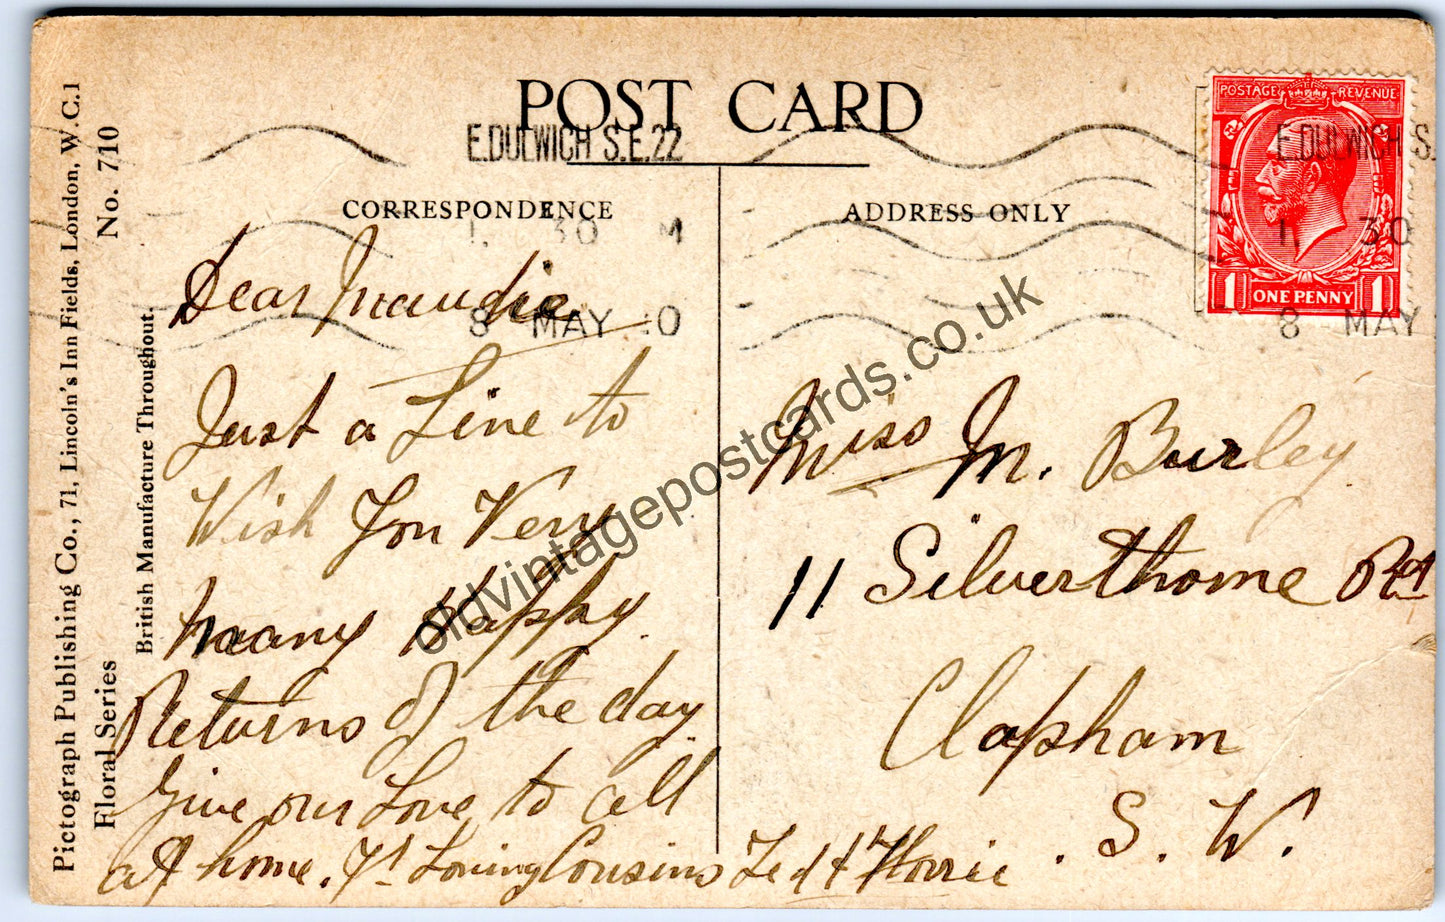 POST CARD
E.DULWICH S.E.22
1. 30 M
8 MAY 0
CORRESPONDENCE
ADDRESS ONLY
POSTAGE REVENUE
1 ONE PENNY 1
E.DULWICH S.
1. 30
8 MAY
Pictograph Publishing Co., 71, Lincoln's Inn Fields, London, W.C.1
Floral Series
No. 710
British Manufacture Throughout.
Dear Maudie
Just a Line to
Wish You Very
Many Happy
Returns of the day
Give our Love to all
at home. Yr Loving Cousins Ted & Florrie.
Miss M. Burley
11 Silverthorne Rd
Clapham
S. W.
oldvintagepostcards.co.uk